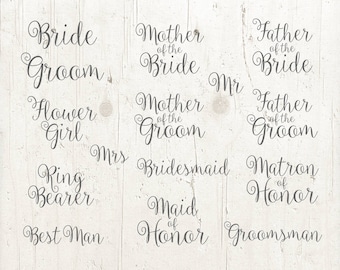 Bride
Groom
Flower
Girl
Mrs
Ring
Bearer
Best Man
Mother
of the
Bride
Mother
of the
Groom
Bridesmaid
Maid
of
Honor
Mr
Father
of the
Bride
Father
of the
Groom
Matron
of
Honor
Groomsman